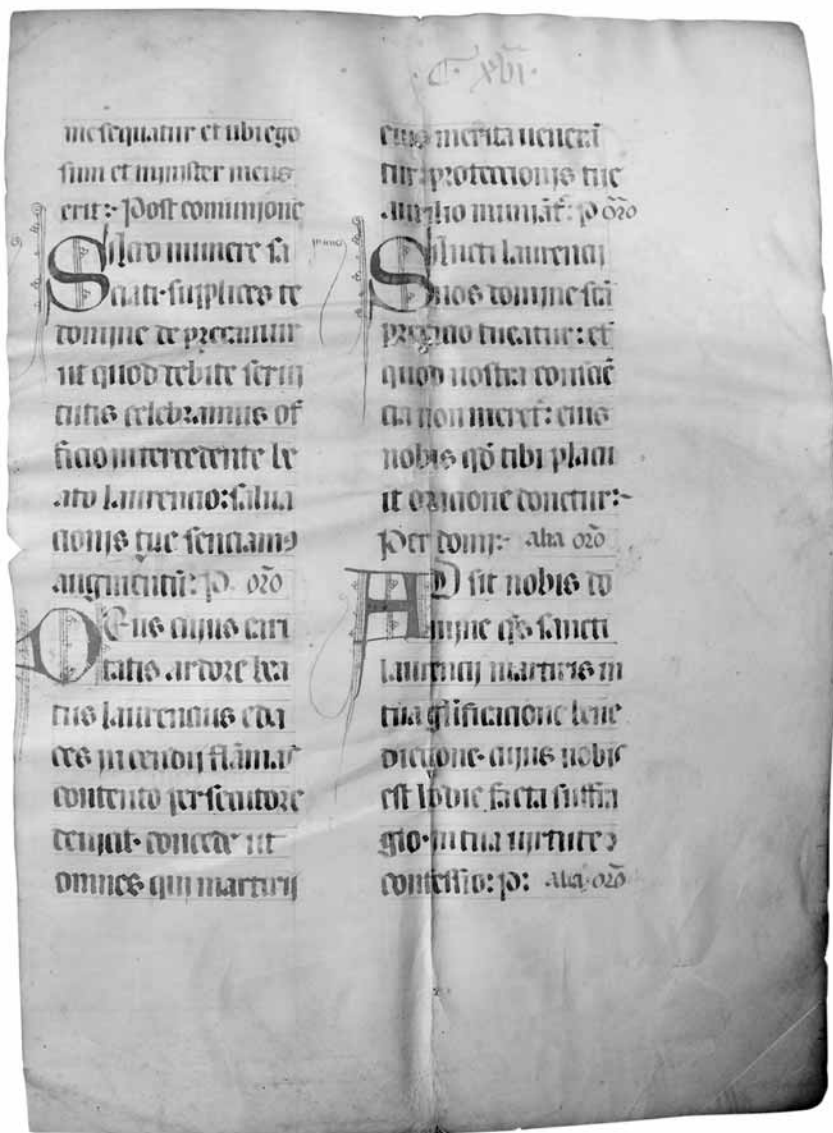 C. xvi.
me sequatur et ubi ego
sum et minister meus
erit: Post comunione
Sacro munere sa
ciati supplices te
domine de precamur
ut quod debite serui
tutis celebramus of
ficio intercedente be
ato laurencio: salua
cionis tue senciamꝰ
augmentū: P. orō
Deus cuius cari
tatis ardore bea
tus laurencius eda
ces incendij flāmas
contento persecutore
deuicit. concede ut
omnes qui martirij
eius merita uenerā
tur: protectionis tue
auxilio muniāt: P orō
Sancti laurencij
nos domine sc̄a
precacio tueatur: et
quod nostra consciē
cia non meret: eius
nobis qd̄ tibi placu
it oracione donetur:
Per domi: alia orō
AD sit nobis do
mine qs̄ sancti
laurencij martiris in
tua glificacione bene
dictione. cuius nobis
est hodie facta suffra
gio. in tua uirtute
confessio: P: alia orō